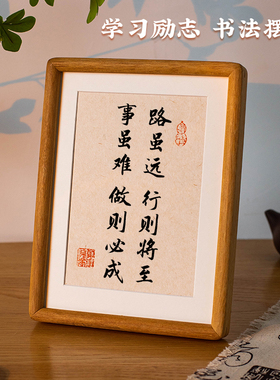 学习励志 书法摆
路虽远 行则将至
事虽难 做则必成